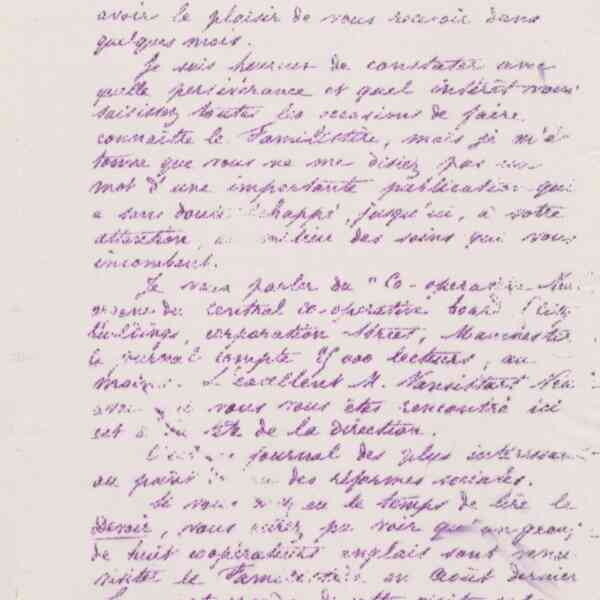 avoir le plaisir de vous recevoir dans
quelques mois.
Je suis heureux de constater avec
quelle persévérance et quel intérêt vous
saisissez toutes les occasions de faire
connaître le Familistère, mais je m'é-
tonne que vous ne me disiez pas un
mot d'une importante publication qui
a sans doute échappé, jusqu'ici, à votre
attention, au milieu des soins qui vous
incombent.
Je veux parler du "Co-operative New
organe du central co-operative board City
Buildings, corporation Street, Manchester
le journal compte 25 000 lecteurs, au
moins. L'excellent M. Vansittart Nea
avec qui vous vous êtes rencontré ici
est à la tête de la direction.
journal des plus intéressan
au point des réformes sociales.
Si vous avez eu le temps de lire le
Devoir, vous aurez pu voir qu'un group
de huit coopérateurs anglais sont venu
visiter le Familistère en Août dernier